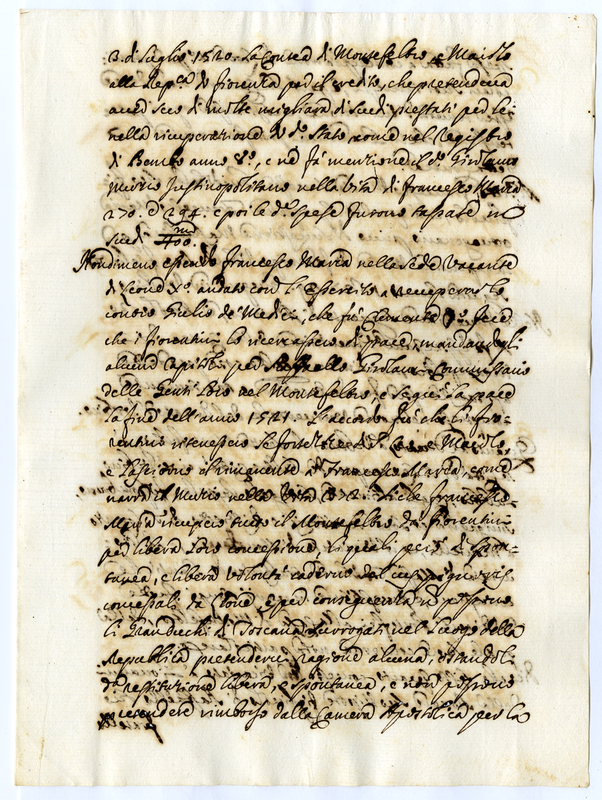 3. di Luglio 1520. La Contea di Montefeltro, e Maiolo
alla Rep.ca di fiorenza per il credito, che pretendeva
aver seco di molte migliara di scudi prestati per la
nella ricuperatione di d.o Stato come nel Registro
di Bembo anno 8.o, e ne fà mentione il d.o Girolamo
Mutio Justinopolitano nella vita di Francesco Maria
270. e 294. e poi le d.e spese furono tassate in
scudi m/400.
Nondimeno essendo francesco Maria nella Sede Vacante
di Leone X.o andato con l'essercito a recuperar lo
Giulio de Medici, che fù Clemente 7.o fece
che i fiorentini lo ricevessero di pace, mandandogli
alcuni capitoli per Girolami Commissario
delle Genti loro nel Montefeltro, e seguì la pace
la fine dell'anno 1521. L'accordo fù che li fio-
rentini ritenessero le fortezze di S. Leo e Maiolo,
e lasciorno il rimanente a francesco Maria, come
narra il Mutio nella Vita Si che francesco
Maria recuperò tutto il Montefeltro da fiorentini
per libera loro concessione, li quali però di spon-
tanea, e libera volontà caderno dal
concessali da Leone, e per conseguenza non possono
li Granduchi di Toscana surrogati nel luogo della
Republica pretendervi ragione alcuna,
la restitutione libera, e spontanea, e non possono
pretendere rimborso dalla Camera Apostolica per la